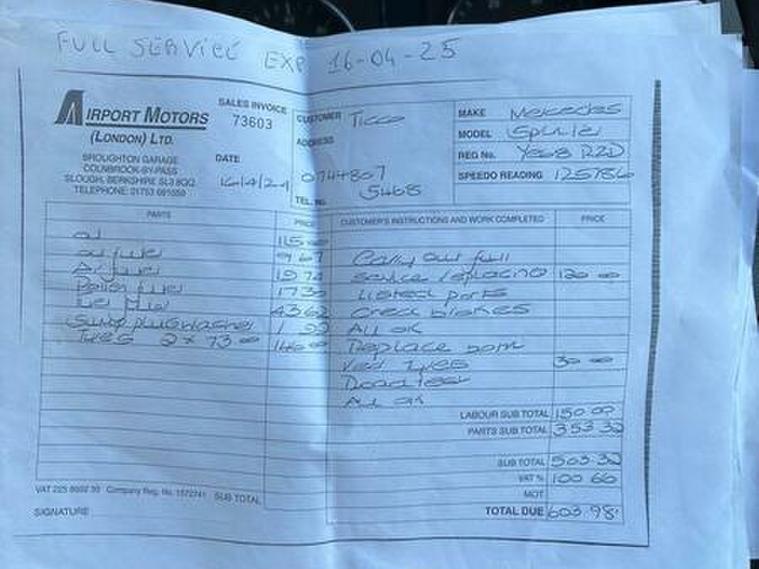 FULL SERVICE EXP 16-04-25
AIRPORT MOTORS
(LONDON) LTD.
BROUGHTON GARAGE
COLNBROOK-BY-PASS
SLOUGH, BERKSHIRE SL3 8QQ
TELEPHONE: 01753 681550
SALES INVOICE
73603
DATE
16/4/24
CUSTOMER Ticco
ADDRESS
0744807
5468
TEL. No.
MAKE Mercedes
MODEL Sprinter
REG No. YG68 RZD
SPEEDO READING 125786
PARTS PRICE
oil 115 00
oil filter 9 67
Air filter 19 70
Pollen filter 17 30
fuel filter 43 62
Sump plug washer 1 22
Tyres 2 x 73 00 146 00
CUSTOMER'S INSTRUCTIONS AND WORK COMPLETED PRICE
Carry out full
Service replacing 120 00
Listed parts
Check brakes
All ok
Replace both
tyres 30 00
Road test
All ok
LABOUR SUB TOTAL 150.00
PARTS SUB TOTAL 353.32
SUB TOTAL 503.32
VAT % 100 66
MOT
TOTAL DUE 603.98
VAT 225 8602 30 Company Reg. No. 1572741 SUB TOTAL
SIGNATURE